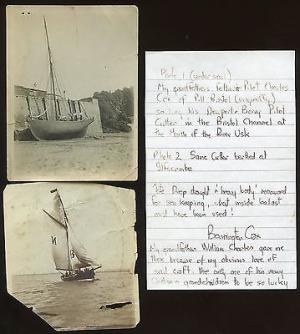 Photo 1 (under sail)
My grandfathers Pilot Charles
Cox of Pill Bristol
his Pilot
Cutter in the Bristol Channel at
the Mouth of the River Usk
Photo 2 Same Cutter beached at
Ilfracombe
The Deep draught & heavy body
for sea keeping, inside ballast
must have been used!
Barrington Cox
My grandfather William Charles gave me
these because of my obvious love of
sail craft. the only one of his many
grandchildren to be so lucky